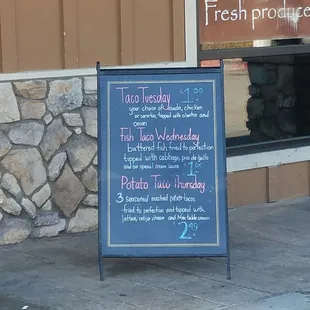 Fresh produce
Taco Tuesday $1.00
your choice of asada, chicken
or carnitas, topped with
Fish Taco Wednesday
battered fish, fried to perfection
topped with cabbage, pico de gallo
and
$1.00
Potato Taco Thursday
3 seasoned mashed potato tacos
fried to perfection and topped with
cheese and
2.49